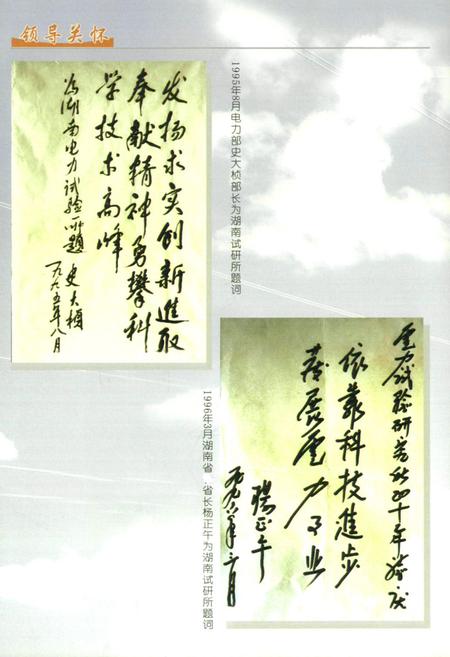 领导关怀
发扬求实创新进取
奉献精神勇攀科
学技术高峰
为湖南电力试验所题
史大桢
一九九五年八月
1995年8月电力部史大桢部长为湖南试研所题词
电力试验研究所四十年势庆
依靠科技進步
发展电力事业
杨正午
一九九六年三月
1996年3月湖南省.省长杨正午为湖南试研所题词